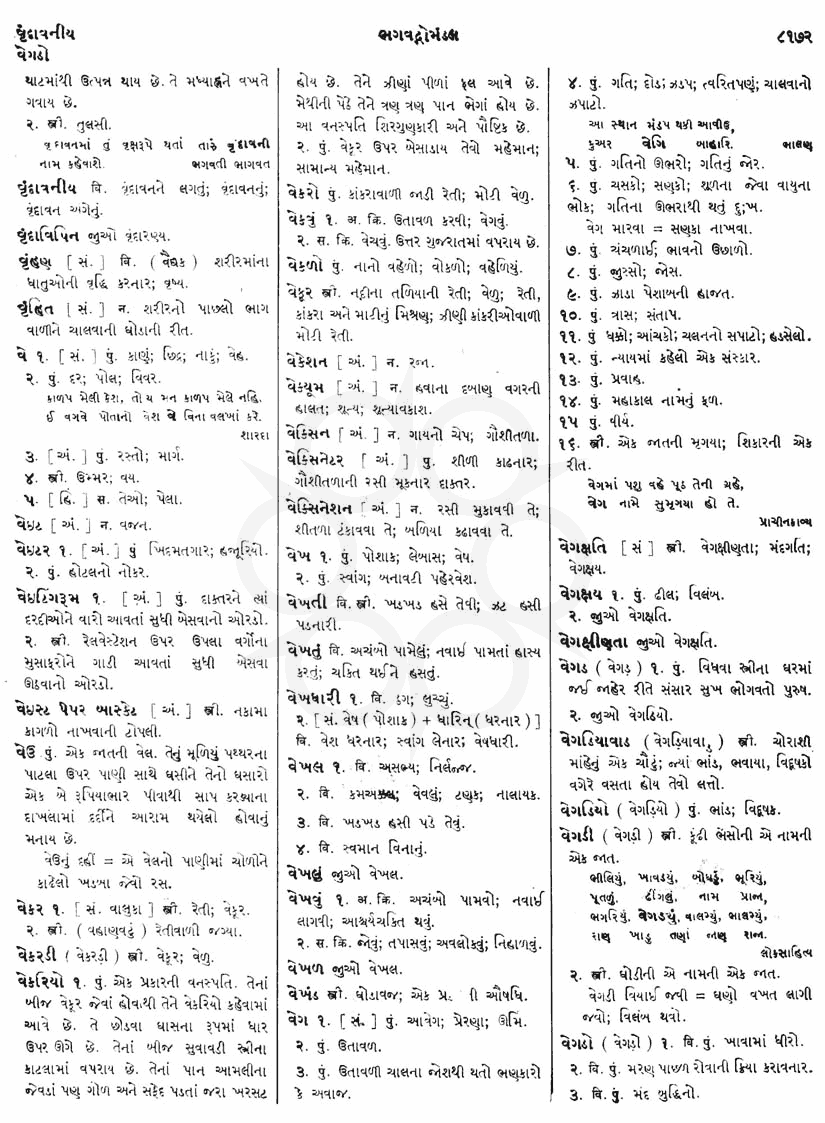 વૃંદાવનીય
ભગવદ્ગોમંડલ
૮૧૭૨
વેગડો
થાટમાંથી ઉત્પન્ન થાય છે. તે મધ્યાહ્નને વખતે
ગવાય છે.
૨. સ્ત્રી. તુલસી.
વૃંદાવનમાં તું વૃક્ષરૂપે થતાં તારું વૃંદાવની
નામ કહેવાશે. ભગવતી ભાગવત
વૃંદાવનીય વિ. વૃંદાવનને લગતું; વૃંદાવનનું;
વૃંદાવન અંગેનું.
વૃંદાવિપિન જુઓ વૃંદારણ્ય.
વૃંહણ [ સં. ] વિ. ( વૈદ્યક ) શરીરમાંના
ધાતુઓની વૃદ્ધિ કરનાર; વૃષ્ય.
વૃંહિત [ સં. ] ન. શરીરનો પાછલો ભાગ
વાળીને ચાલવાની ઘોડાની રીત.
વે ૧. [ સં. ] પું. કાણું; છિદ્ર; નાકું; વેહ.
૨. પું. દર; પોલ; વિવર.
કાળપ મેલી કેશ, તો ય મન કાળપ મેલે નહિ.
ઈ વગવે પોતાનો વેશ વે વિના વલખાં કરે.
શારદા
૩. [ અં. ] પું. રસ્તો; માર્ગ.
૪. સ્ત્રી. ઉમ્મર; વય.
૫. [ હિં. ] સ. તેઓ; પેલા.
વેઇટ [ અં. ] ન. વજન.
વેઇટર ૧. [ અં. ] પું ખિદમતગાર; હજૂરિયો.
૨. પું. હોટલનો નોકર.
વેઇટિંગરૂમ ૧. [ અં. ] પું. દાક્તરને ત્યાં
દરદીઓને વારો આવતાં સુધી બેસવાનો ઓરડો.
૨. સ્ત્રી. રેલવેસ્ટેશન ઉપર ઉપલા વર્ગોના
મુસાફરોને ગાડી આવતાં સુધી બેસવા
ઊઠવાનો ઓરડો.
વેઇસ્ટ પેપર બાસ્કેટ [ અં. ] સ્ત્રી. નકામા
કાગળો નાખવાની ટોપલી.
વેઉ પું. એક જાતની વેલ. તેનું મૂળિયું પથ્થરના
પાટલા ઉપર પાણી સાથે ઘસીને તેનો ઘસારો
એક બે રૂપિયાભાર પીવાથી સાપ કરડ્યાના
દાખલામાં દર્દીને આરામ થયેલો હોવાનું
મનાય છે.
વેઉનું દહીં = એ વેલનો પાણીમાં ચોળીને
કાઢેલો ખડબા જેવો રસ.
વેકર ૧. [ સં. વાલુકા ] સ્ત્રી. રેતી; વેકૂર.
૨. સ્ત્રી. ( વહાણવટું ) રેતીવાળી જગ્યા.
વેકરડી ( વેકરડ઼ી ) સ્ત્રી. વેકૂર; વેળુ.
વેકરિયો ૧. પું. એક પ્રકારની વનસ્પતિ. તેનાં
બીજ વેકૂર જેવાં હોવાથી તેને વેકરિયો કહેવામાં
આવે છે. તે છોડવા ઘાસના રૂપમાં ધાર
ઉપર ઊગે છે. તેનાં બીજ સુવાવડી સ્ત્રીના
કાટલામાં વપરાય છે. તેનાં પાન આમલીના
જેવડાં પણ ગોળ અને સફેદ પડતાં જરા ખરસટ
હોય છે. તેને ઝીણાં પીળાં ફૂલ આવે છે.
મેથીની પેઠે તેને ત્રણ ત્રણ પાન ભેગાં હોય છે.
આ વનસ્પતિ શિરગુણકારી અને પૌષ્ટિક છે.
૨. પું. વેકૂર ઉપર બેસાડાય તેવો મહેમાન;
સામાન્ય મહેમાન.
વેકરો પું. કાંકરાવાળી જાડી રેતી; મોટી વેળુ.
વેકવું ૧. અ. ક્રિ. ઉતાવળ કરવી; વેગવું.
૨. સ. ક્રિ. વેચવું. ઉત્તર ગુજરાતમાં વપરાય છે.
વેકળો પું. નાનો વહેળો; વોકળો; વહેળિયું.
વેકૂર સ્ત્રી. નદીના તળિયાની રેતી; વેળુ; રેતી,
કાંકરા અને માટીનું મિશ્રણ; ઝીણી કાંકરીઓવાળી
મોટી રેતી.
વેકેશન [ અં. ] ન. રજા.
વેક્યૂમ [ અં. ] ન. હવાના દબાણ વગરની
હાલત; શૂન્ય; શૂન્યાવકાશ.
વેક્સિન [ અં. ] ન. ગાયનો ચેપ; ગૌશીતળા.
વેક્સિનેટર [ અં. ] પું. શીળી કાઢનાર;
ગૌશીતળાની રસી મૂકનાર દાક્તર.
વેક્સિનેશન [ અં. ] ન. રસી મુકાવવી તે;
શીતળા ટંકાવવા તે; બળિયા કઢાવવા તે.
વેખ ૧. પું. પોશાક; લેબાસ; વેષ.
૨. પું. સ્વાંગ; બનાવટી પહેરવેશ.
વેખતી વિ. સ્ત્રી. ખડખડ હસે તેવી; ઝટ હસી
પડનારી.
વેખતું વિ. અચંબો પામેલું; નવાઈ પામતાં હાસ્ય
કરતું; ચકિત થઈને હસતું.
વેખધારી ૧. વિ. ઠગ; લુચ્ચું.
૨. [ સં. વેષ ( પોશાક ) + ધારિન્ ( ધરનાર ) ]
વિ. વેશ ધરનાર; સ્વાંગ લેનાર; વેષધારી.
વેખલ ૧. વિ. અસભ્ય; નિર્લજ્જ.
૨. વિ. કમઅક્કલ; વેવલું; ટણુક; નાલાયક.
૩. વિ. ખડખડ હસી પડે તેવું.
૪. વિ. સ્વમાન વિનાનું.
વેખલું જુઓ વેખલ.
વેખવું ૧. અ. ક્રિ. અચંબો પામવો; નવાઈ
લાગવી; આશ્ચર્યચકિત થવું.
૨. સ. ક્રિ. જોવું; તપાસવું; અવલોકવું; નિહાળવું.
વેખળ જુઓ વેખલ.
વેખંડ સ્ત્રી. ઘોડાવજ; એક ઔષધિ.
વેગ ૧. [ સં. ] પું. આવેગ; પ્રેરણા; ઊર્મિ.
૨. પું. ઉતાવળ.
૩. પું. ઉતાવળી ચાલના જોશથી થતો ભણકારો
કે અવાજ.
૪. પું. ગતિ; દોડ; ઝડપ; ત્વરિતપણું; ચાલવાનો
ઝપાટો.
આ સ્થાન મંડપ થકી આવીહ,
કુંઅર વેગિ બાહારિ. ભાલણ
૫. પું. ગતિનો ઊભરો; ગતિનું જોર.
૬. પું. ચસકો; સણકો; શૂળના જેવા વાયુના
ભોક; ગતિના ઊભરાથી થતું દુઃખ.
વેગ મારવા = સણકા નાખવા.
૭. પું. ચંચળાઈ; ભાવનો ઉછાળો.
૮. પું. જુસ્સો; જોસ.
૯. પું. ઝાડા પેશાબની હાજત.
૧૦. પું. ત્રાસ; સંતાપ.
૧૧. પું ધક્કો; આંચકો; ચલનનો સપાટો; હડસેલો.
૧૨. પું. ન્યાયમાં કહેલો એક સંસ્કાર.
૧૩. પું. પ્રવાહ.
૧૪. પું. મહાકાલ નામનું ફળ.
૧૫ પું. વીર્ય.
૧૬. સ્ત્રી. એક જાતની મૃગયા; શિકારની એક
રીત.
વેગમાં પશુ વહે પૂઠ તેની ગ્રહે,
વેગ નામે સુમૃગયા હો તે.
પ્રાચીનકાવ્ય
વેગક્ષતિ [ સં ] સ્ત્રી. વેગક્ષીણતા; મંદગતિ;
વેગક્ષય.
વેગક્ષય ૧. પું. ઢીલ; વિલંબ.
૨. જુઓ વેગક્ષતિ.
વેગક્ષીણતા જુઓ વેગક્ષતિ.
વેગડ ( વેગડ઼ ) ૧. પું. વિધવા સ્ત્રીના ઘરમાં
જઈ જાહેર રીતે સંસાર સુખ ભોગવતો પુરુષ.
૨. જુઓ વેગડિયો.
વેગડિયાવાડ ( વેગડિયાવાડ઼ ) સ્ત્રી. ચોરાશી
માંહેનું એક ચૌટું; જ્યાં ભાંડ, ભવાયા, વિદૂષકો
વગેરે વસતા હોય તેવો લત્તો.
વેગડિયો ( વેગડ઼િયો ) પું. ભાંડ; વિદૂષક.
વેગડી ( વેગડ઼ી ) સ્ત્રી. કૂંઢી ભેંસોની એ નામની
એક જાત.
ભીલિયું, ખાવડયું, બોઘડું, ભૂરિયું,
પૂતળું, ઢીંગલું, નામ પ્રાજા,
ભગરિયું, વેગડયું, વાલમ્યું, ભાલમ્યું,
રાણ ખાડુ તણાં જાણ રાજા.
લોકસાહિત્ય
૨. સ્ત્રી. ઘોડીની એ નામની એક જાત.
વેગડી વિયાઈ જવી = ઘણો વખત લાગી
જવો; વિલંબ થવો.
વેગડો ( વેગડ઼ો ) ૧. વિ. પું. ખાવામાં ધીરો.
૨. વિ. પું. મરણ પાછળ રોવાની ક્રિયા કરાવનાર.
૩. વિ. પું. મંદ બુદ્ધિનો.